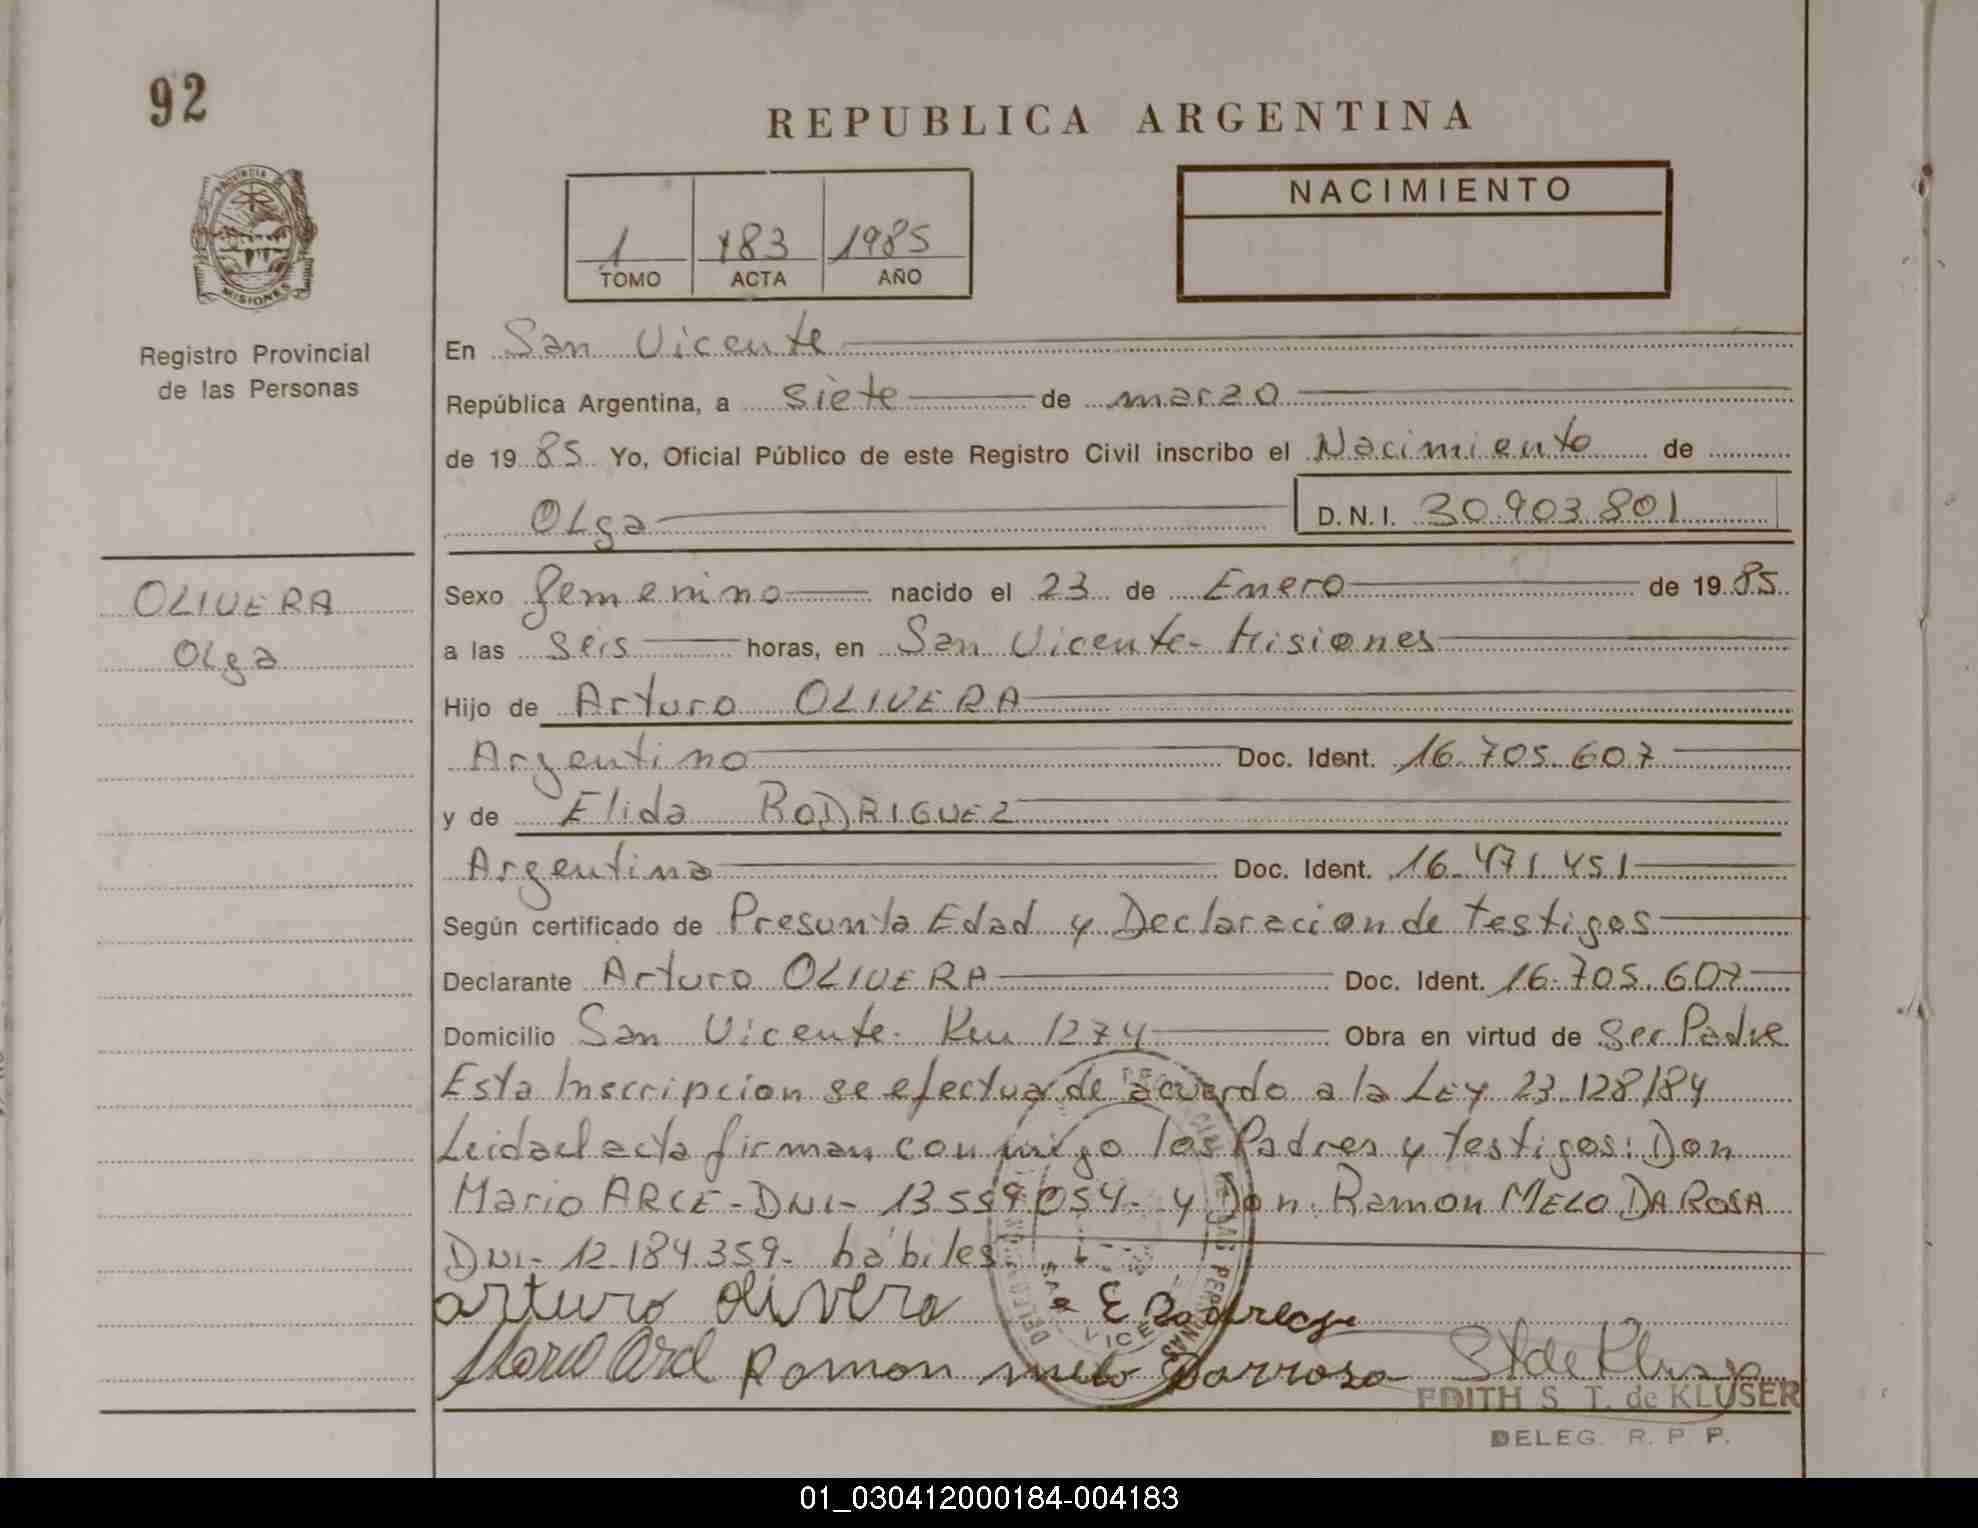 92
REPUBLICA ARGENTINA
NACIMIENTO
1 183 1985
TOMO ACTA AÑO
MISIONES
Registro Provincial
de las Personas
En San Vicente
República Argentina, a siete de marzo
de 1985 Yo, Oficial Público de este Registro Civil inscribo el Nacimiento de
OLga D.N.I. 30.903.801
OLIVERA
OLga
Sexo femenino nacido el 23 de Enero de 1985
a las seis horas, en San Vicente- Misiones
Hijo de Arturo OLIVERA
Argentino Doc. Ident. 16.705.607
y de Elida RODRIGUEZ
Argentina Doc. Ident. 16.471.451
Según certificado de Presunta Edad y Declaracion de testigos
Declarante Arturo OLIVERA Doc. Ident. 16.705.607
Domicilio San Vicente- Km 1274 Obra en virtud de ser Padre
Esta Inscripcion se efectua de acuerdo a la LEY 23.128/84
Leida el acta firman conmigo los Padres y testigos: Don
Mario ARCE - DNI- 13.559.054- y Don Ramon MELO DA ROSA
DNI- 12.184.359- hábiles
arturo olivera
Ramon melo
EDITH S. T. de KLUSER
DELEG. R. P. P.
01_030412000184-004183